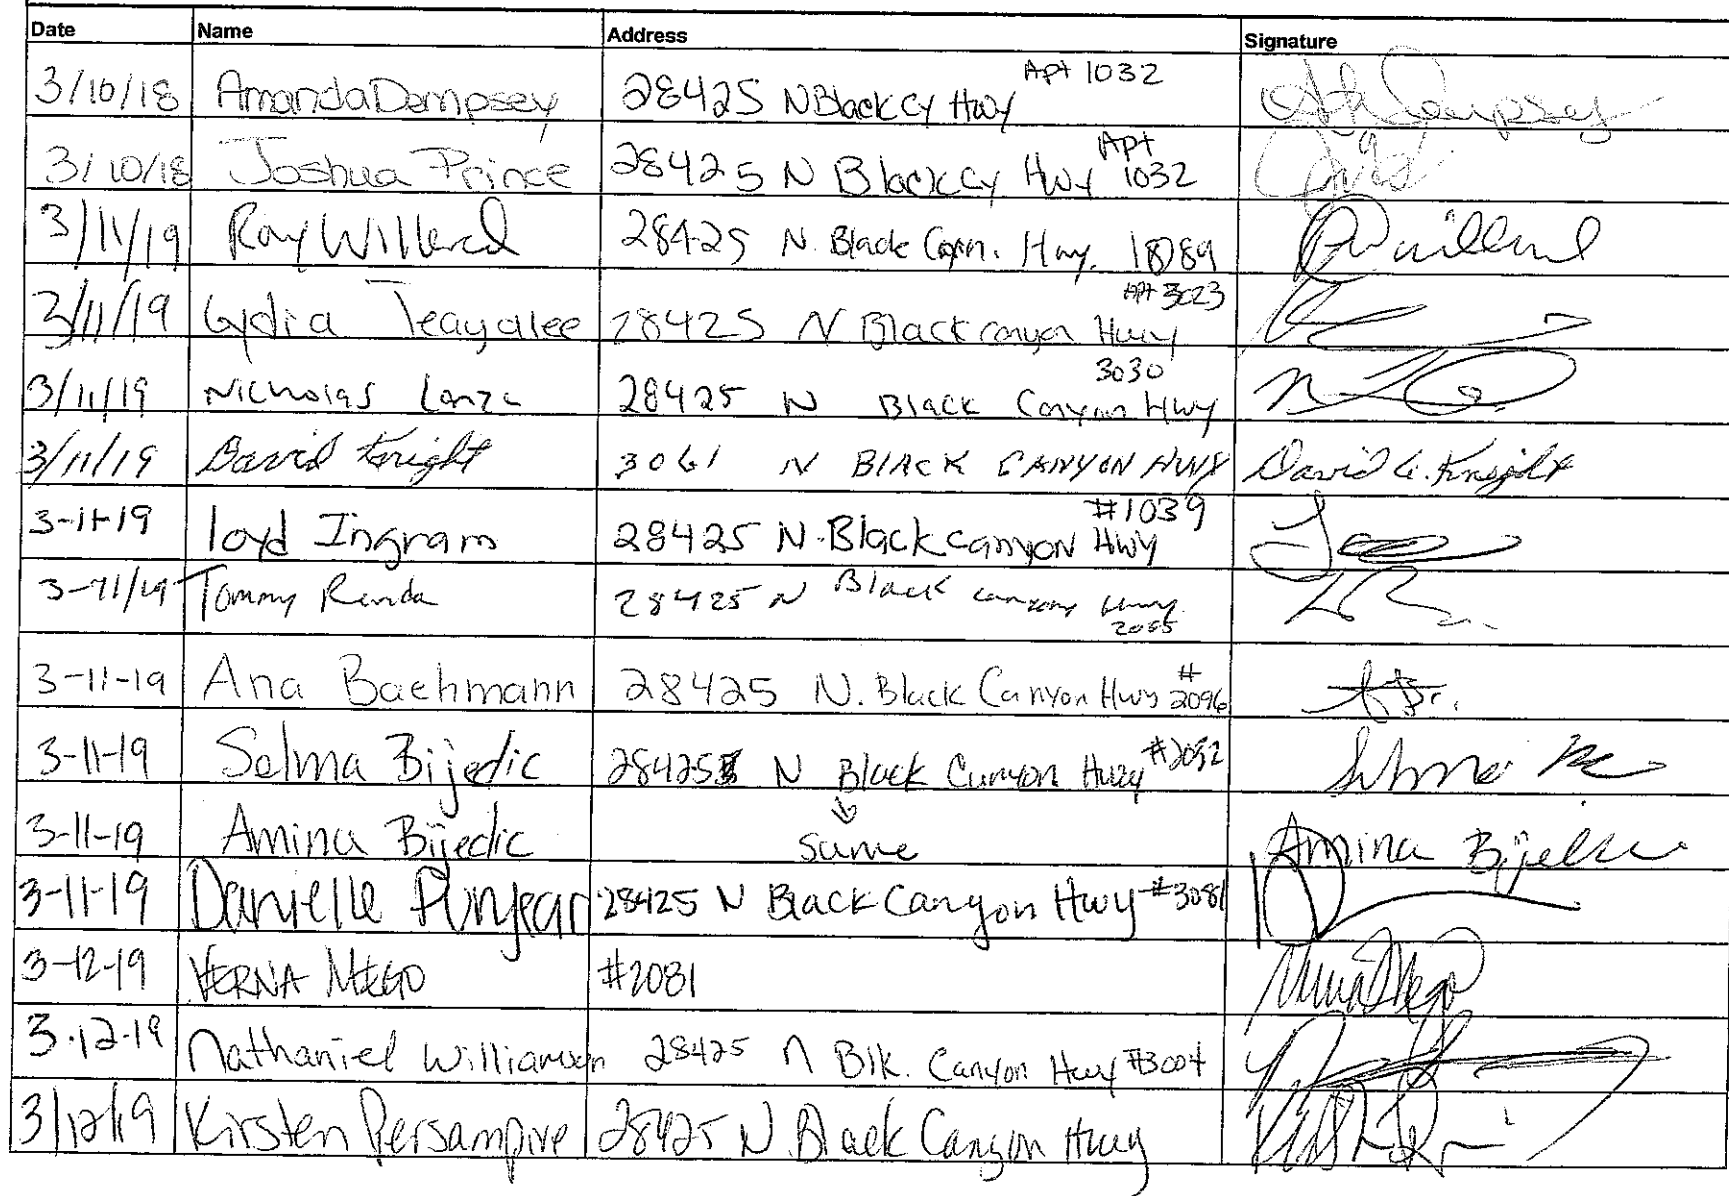 Date Name Address Signature
3/10/18 Amanda Dempsey 28425 N Black Cy Hwy Apt 1032
3/10/18 Joshua Prince 28425 N Black Cy Hwy Apt 1032
3/11/19 Ray Willerd 28425 N. Black Cyn. Hwy.
3/11/19 Lydia Teayalee 28425 N Black canyon Hwy Apt 3023
3/11/19 Nicholas Lanza 28425 N Black Canyon Hwy 3030
3/11/19 David Knight 3061 N BLACK CANYON HWY David G. Knight
3-11-19 loyd Ingram 28425 N. Black canyon HWY #1039
3-11/19 Tommy Renda 28425 N Black canyon Hwy
3-11-19 Ana Bachmann 28425 N. Black Canyon Hwy # 2096
3-11-19 Selma Bijedic 28425 N Black Canyon Hwy
3-11-19 Amina Bijedic same Amina
3-11-19 Danielle Punjear 28425 N Black Canyon Hwy #3081
3-12-19 VERNA MEGO #2081
3-12-19 Nathaniel Williamson 28425 N Blk. Canyon Hwy #3004
3/12/19 Kirsten Persampire 28425 N. Black Canyon Hwy